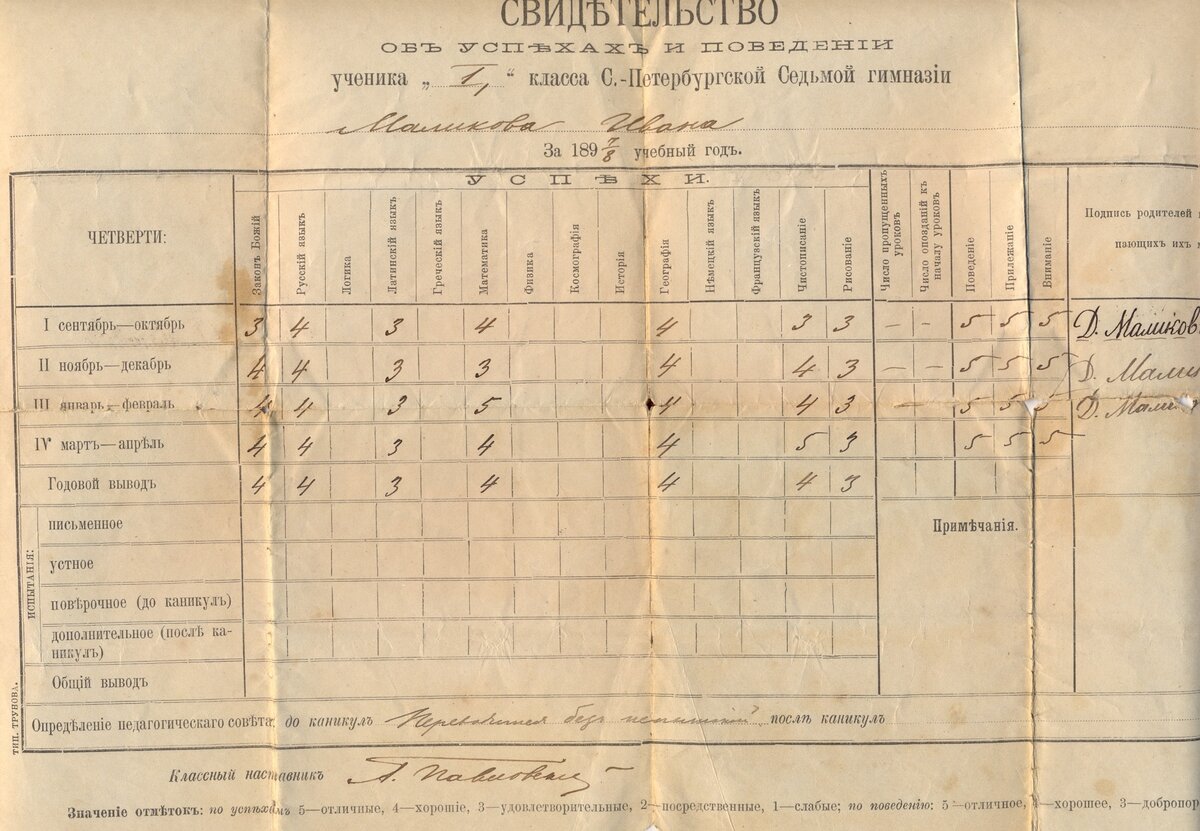 СВИДѢТЕЛЬСТВО
ОБЪ УСПѢХАХЪ И ПОВЕДЕНІИ
ученика „ I, “ класса С.-Петербургской Седьмой гимназіи
Маликова Ивана
За 1897/8 учебный годъ.
ЧЕТВЕРТИ:
УСПѢХИ.
Законъ Божій
Русскій языкъ
Логика
Латинскій языкъ
Греческій языкъ
Математика
Физика
Космографія
Исторія
Географія
Нѣмецкій языкъ
Французскій языкъ
Чистописаніе
Рисованіе
Число пропущенныхъ уроковъ
Число опозданій къ началу уроковъ
Поведеніе
Прилежаніе
Вниманіе
Подпись родителей
пающихъ ихъ
I сентябрь—октябрь 3 4 3 4 4 3 3 — — 5 5 5 Д. Маликов
II ноябрь—декабрь 4 4 3 3 4 4 3 — — 5 5 5 Д. Мали
III январь—февраль 4 4 3 5 4 4 3 — 5 5 5 Д. Мали
IV мартъ—апрѣль 4 4 3 4 4 5 3 5 5 5
Годовой выводъ 4 4 3 4 4 4 3
ИСПЫТАНІЯ:
письменное
Примѣчанія.
устное
повѣрочное (до каникулъ)
дополнительное (послѣ ка-
никулъ)
Общій выводъ
Опредѣленіе педагогическаго совѣта: до каникулъ Переводится безъ испытаній послѣ каникулъ
ТИП. ТРУНОВА.
Классный наставникъ А. Павловскій
Значеніе отмѣтокъ: по успѣхамъ 5—отличные, 4—хорошіе, 3—удовлетворительные, 2—посредственные, 1—слабые; по поведенію: 5—отличное, 4—хорошее, 3—добропор